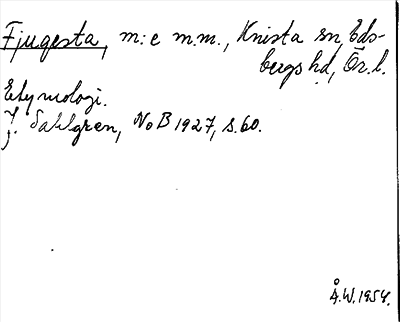 Fjugesta, m:e m.m., Knista sn, Eds-
bergs hd, Ör. l.
Etymologi.
J. Sahlgren, NoB 1927, s. 60.
Å.W. 1954.